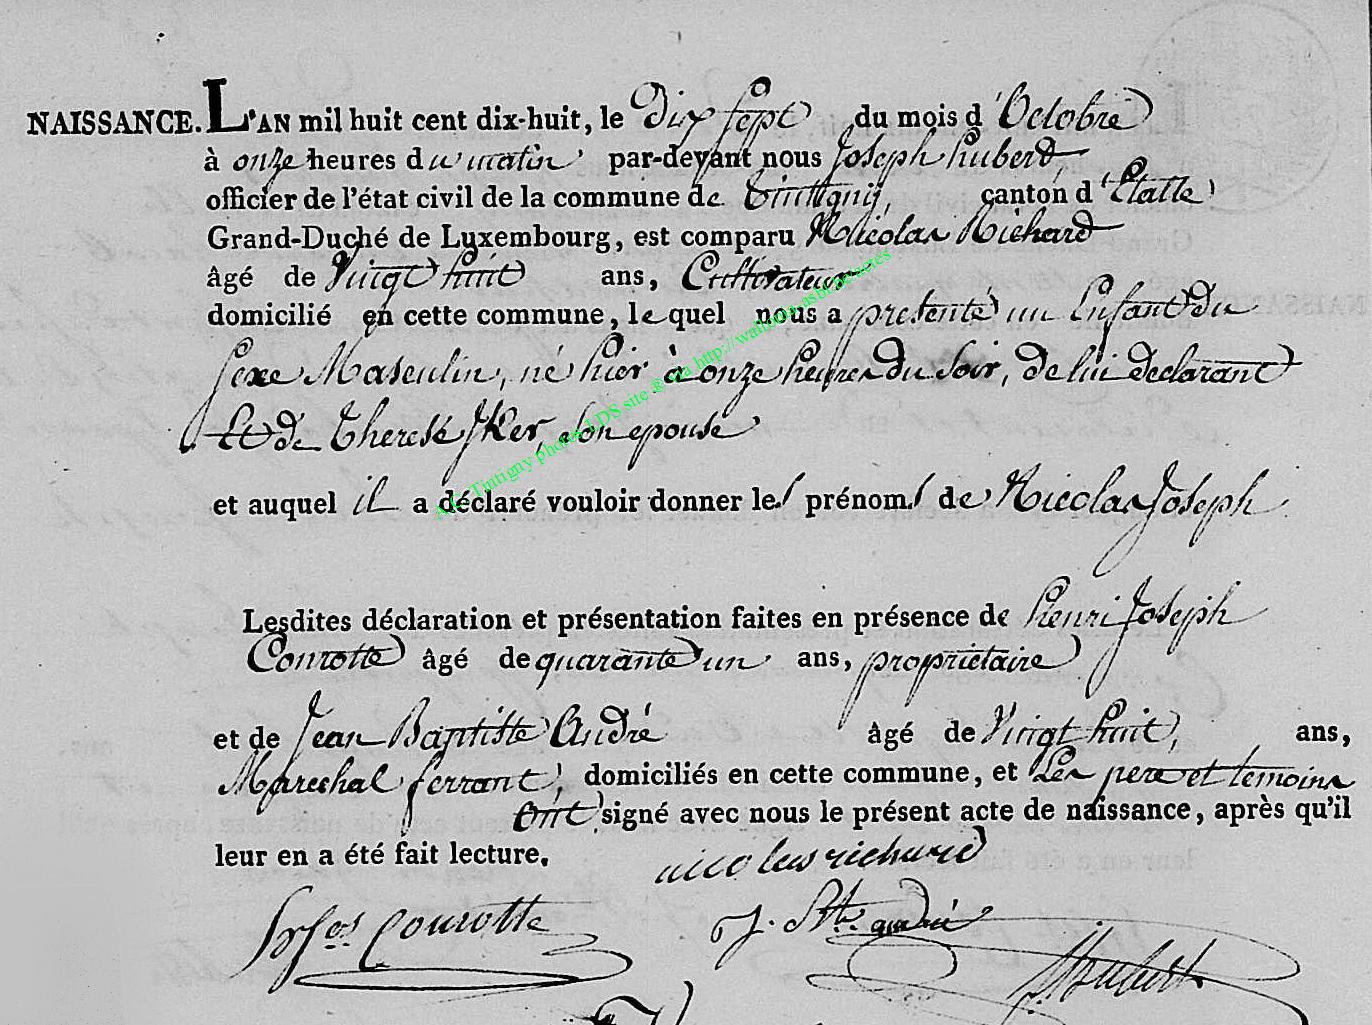 NAISSANCE. L'AN mil huit cent dix-huit, le Dix sept du mois d'Octobre
à onze heures du matin par-devant nous Joseph hubert
officier de l'état civil de la commune de Tintigny, canton d'Etalle
Grand-Duché de Luxembourg, est comparu Nicolas Richard
âgé de Vingt huit ans, Cultivateur
domicilié en cette commune, le quel nous a presenté un Enfant du
sexe Masculin, né hier à onze heures du Soir, de lui declarant
Et de Therese Iker, son epouse
et auquel il a déclaré vouloir donner les prénoms de Nicolas Joseph
Lesdites déclaration et présentation faites en présence de henri Joseph
Conrotte âgé de quarante un ans, propriétaire
et de Jean Baptiste André âgé de Vingt huit, ans,
Marechal ferrant, domiciliés en cette commune, et Les pere et temoins
Ont signé avec nous le présent acte de naissance, après qu'il
leur en a été fait lecture.
nicolas richard
hy Jos Conrotte J. Bte andré
J. Hubert
A.C. Tintigny photos LDS site ® via http://wallonia.asbl.be/actes